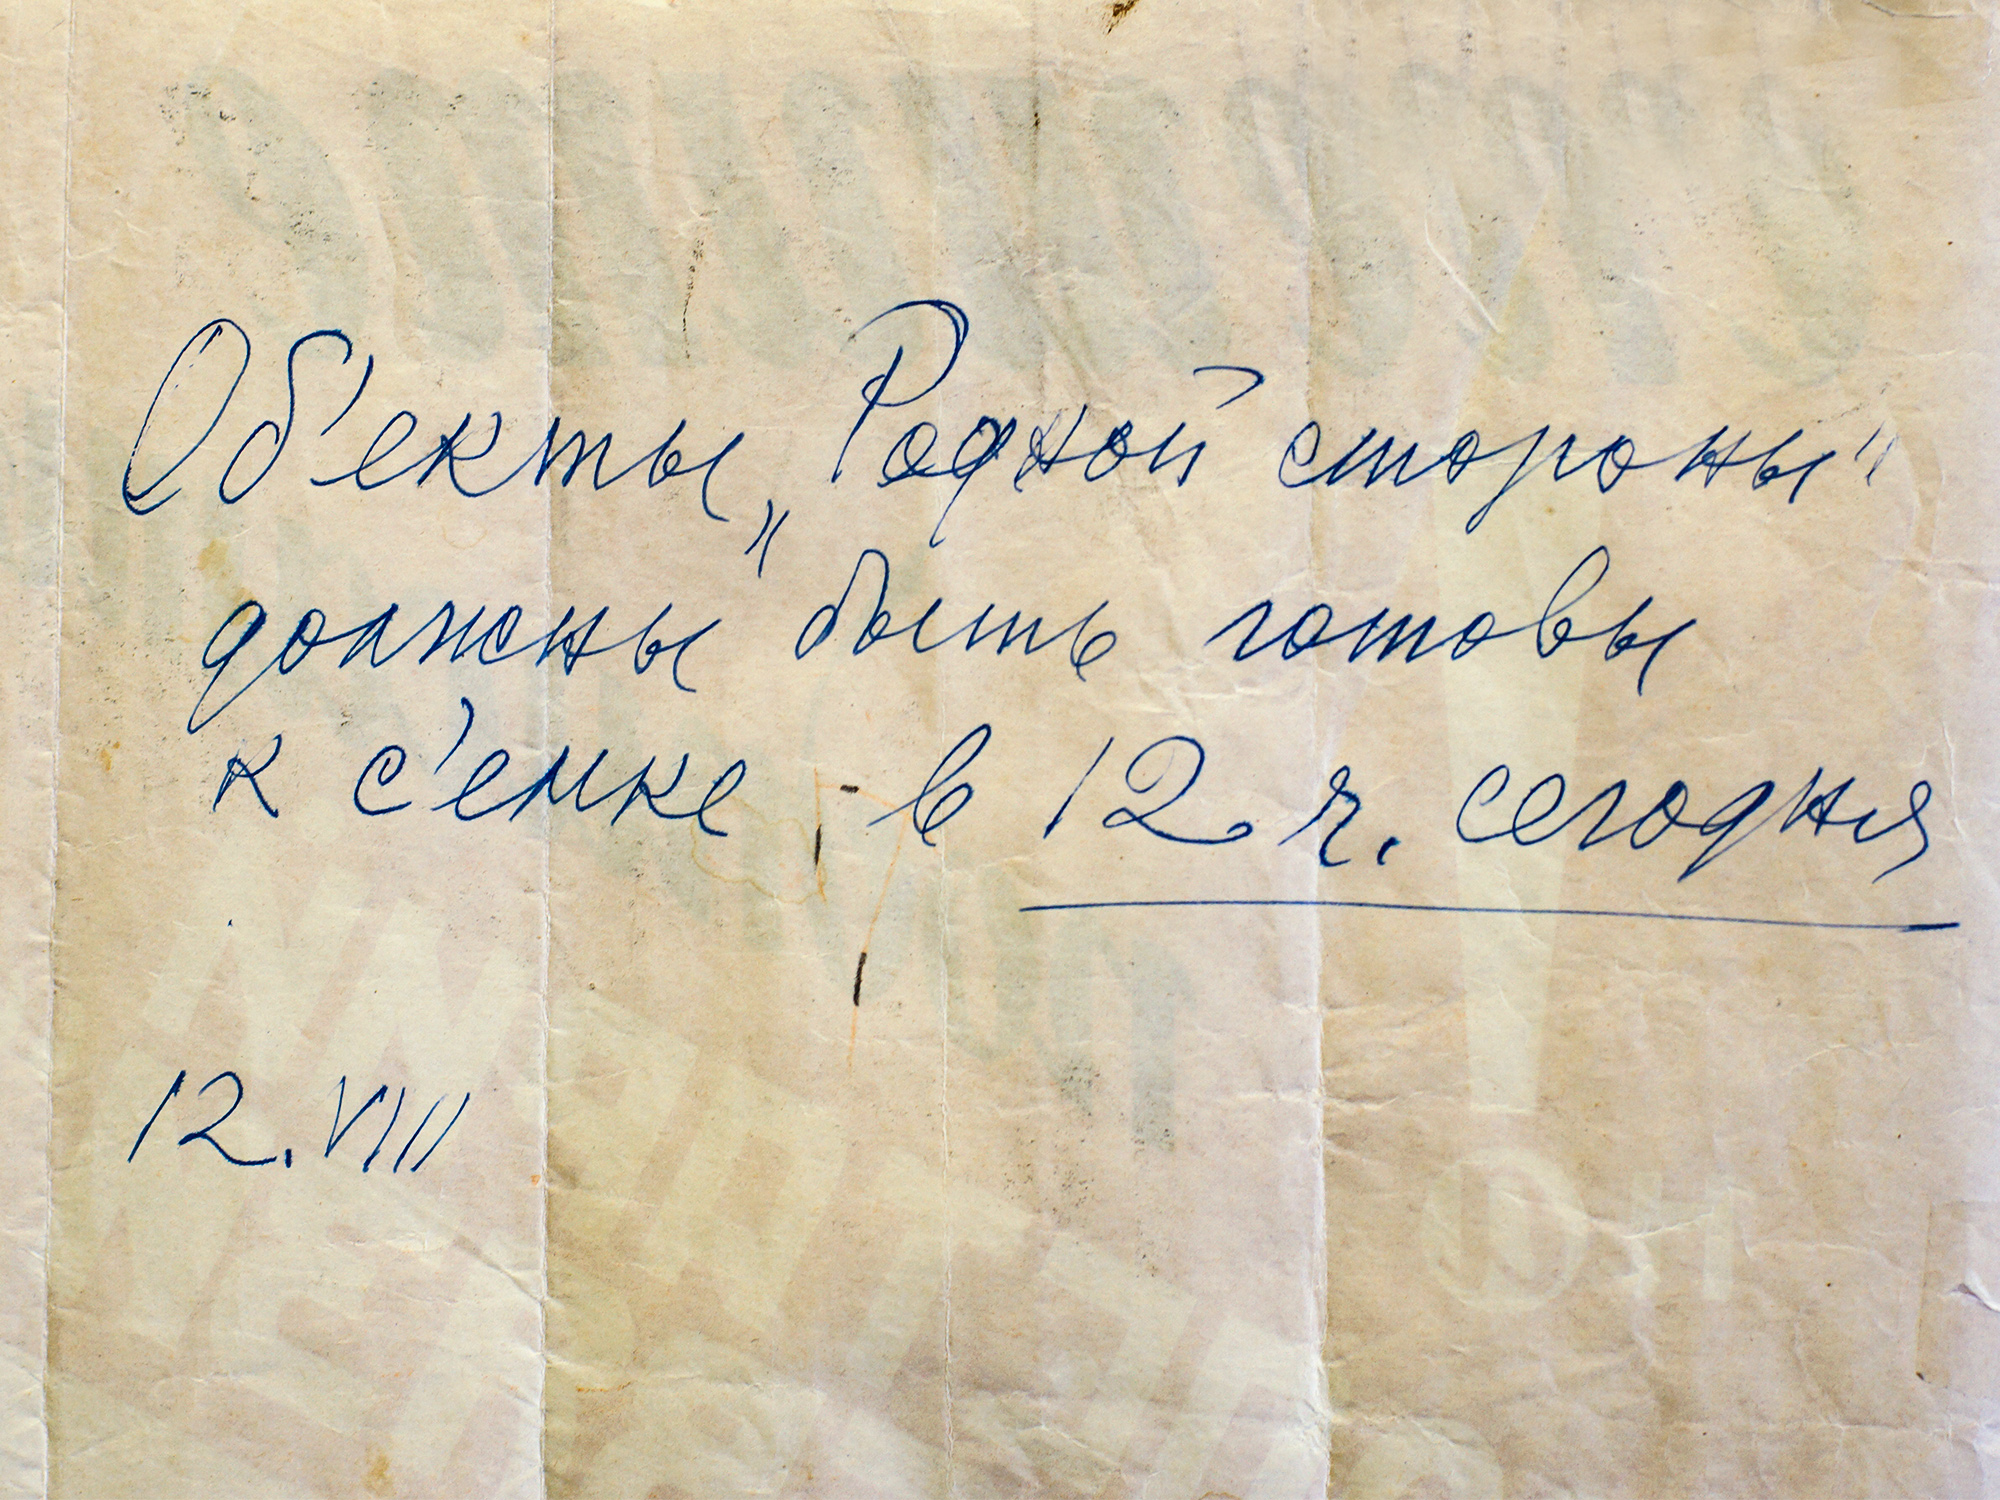 Об'екты „Родной стороны"
должны быть готовы
к с'емке в 12 ч. сегодня
12.VIII